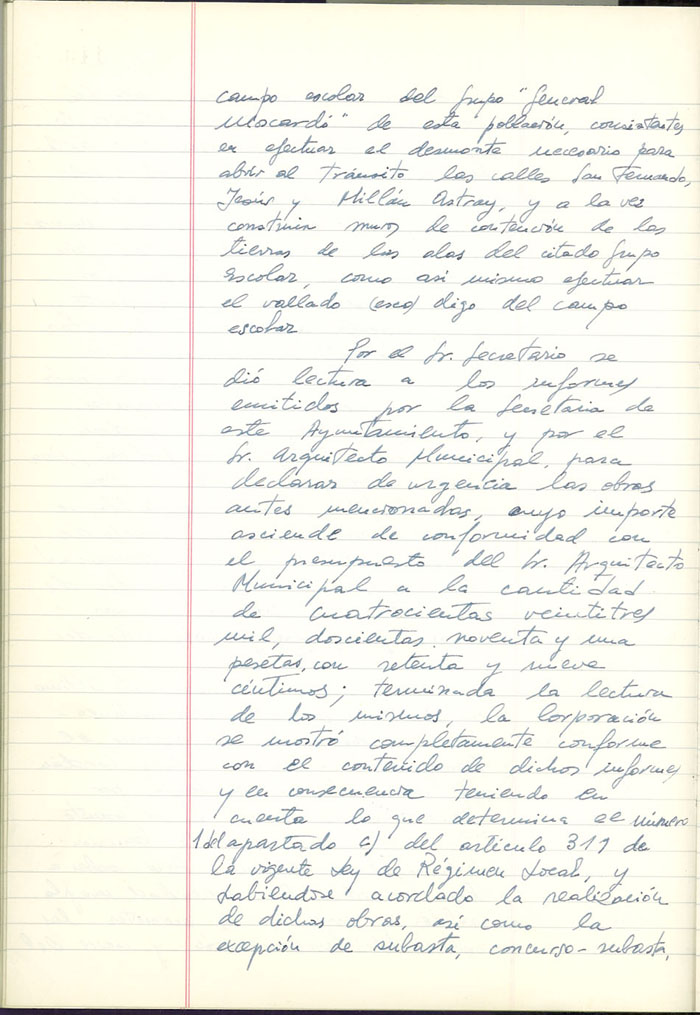 campo escolar del Grupo "General
Mocardó" de esta población, consistentes
en efectuar el desmonte necesario para
abrir al tránsito las calles San Fernando,
Jesús y Millán Astray, y a la vez
construir muros de contención de las
tierras de las alas del citado Grupo
Escolar, como así mismo efectuar
el vallado (esco) digo del campo
escolar
Por el Sr. Secretario se
dió lectura a los informes
emitidos por la Secretaria de
este Ayuntamiento, y por el
Sr. Arquitecto Municipal, para
declarar de urgencia las obras
antes mencionadas, cuyo importe
asciende de conformidad con
el presupuesto del Sr. Arquitecto
Municipal a la cantidad
de cuatrocientas veintitres
mil, doscientas noventa y una
pesetas, con setenta y nueve
céntimos; terminada la lectura
de los mismos, la Corporación
se mostró completamente conforme
con el contenido de dichos informes
y en consecuencia teniendo en
cuenta lo que determina el número
1 del apartado c) del articulo 311 de
la vigente Ley de Régimen Local, y
habiendose acordado la realización
de dichas obras, así como la
excepción de subasta, concurso-subasta,